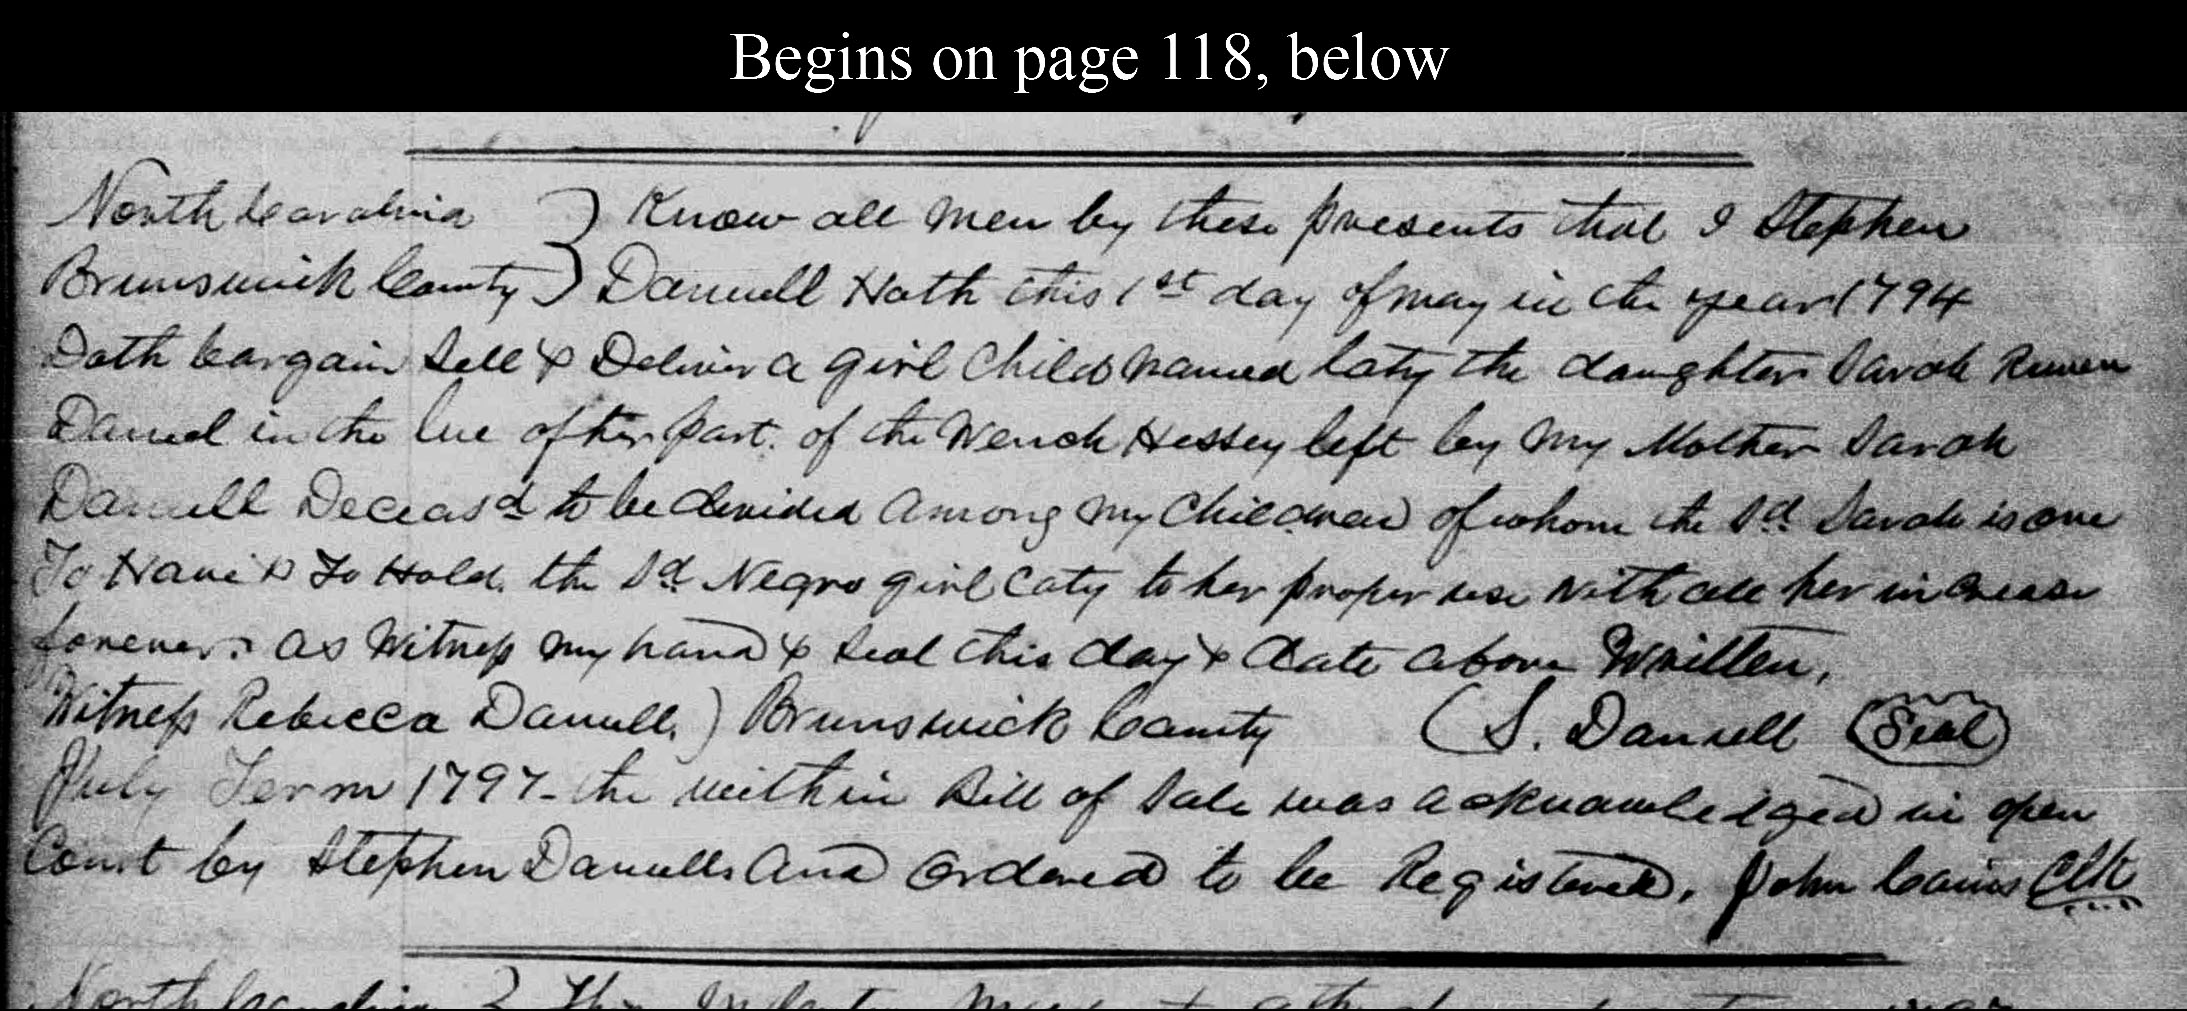 Begins on page 118, below
North Carolina } Know all men by these presents that I Stephen
Brunswick County } Daniell Hath this 1st day of may in the year 1794
Doth bargain Sell & Deliver a girl Child named Caty the daughter Sarah
Daniel in the lue of her part. of the Wench Hessey left by My Mother Sarah
Daniell Deceasd to be devided among my Children of whom the Sd Sarah is one
To Have & To Hold. the Sd Negro girl Caty to her proper use with all her increase
forever. as Witness my hand & Seal this day & date above Written,
Witness Rebecca Daniell.) Brunswick County (S. Daniell (Seal)
July Term 1797- the within Bill of Sale was acknowledged in open
Court by Stephen Daniells and ordered to be Registered. John Cains Clk
North Carolina } This Indenture Made